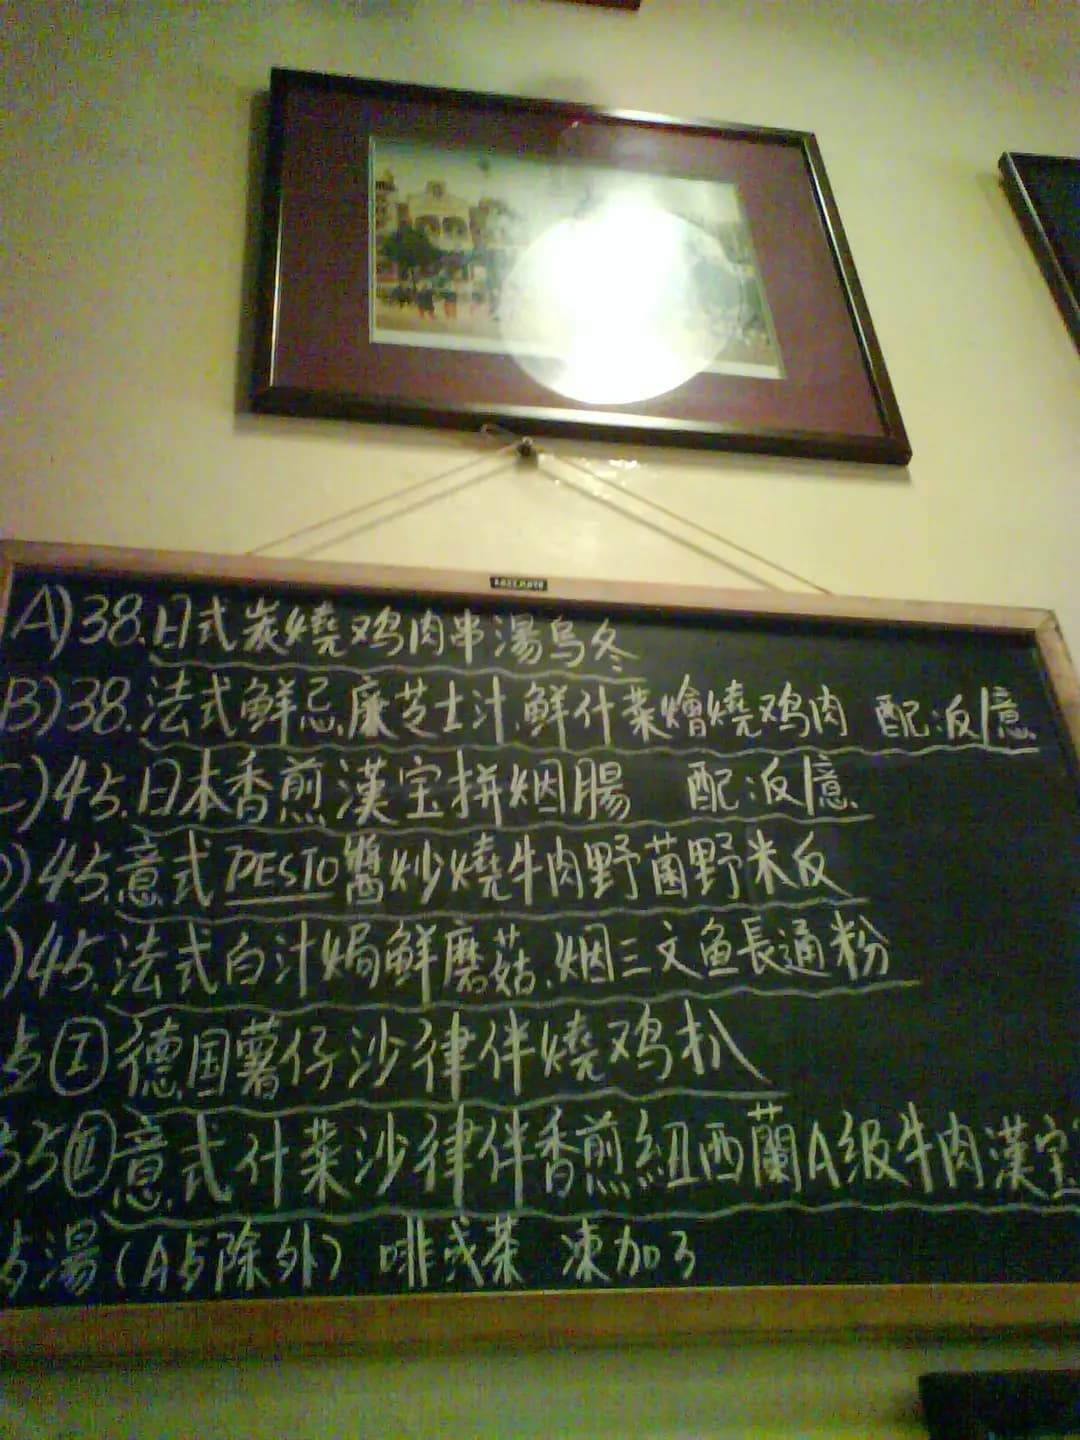 A)38.日式炭燒鸡肉串湯烏冬
B)38.法式鮮忌廉芝士汁.鮮什菜燴燒鸡肉 配:反|意
C)45.日本香煎漢宝拼烟腸 配:反|意
D)45.意式PESTO醬炒燒牛肉野菌野米反
)45.法式白汁焗鮮蘑菇.烟三文鱼長通粉
I 德国薯仔沙律伴燒鸡扒
55 II 意式什菜沙律伴香煎紐西蘭A级牛肉漢宝
湯(A歺除外) 啡或茶 凍加3